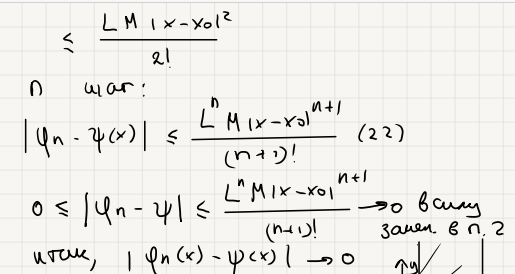 ≤ L M |x-x₀|² / 2!
n шаг:
|φn - ψ(x)| ≤ Lⁿ M |x-x₀|ⁿ⁺¹ / (n+1)! (22)
0 ≤ |φn - ψ| ≤ Lⁿ M |x-x₀|ⁿ⁺¹ / (n+1)! → 0 в силу
замеч. в п. 2
итак, |φn(x) - ψ(x)| → 0